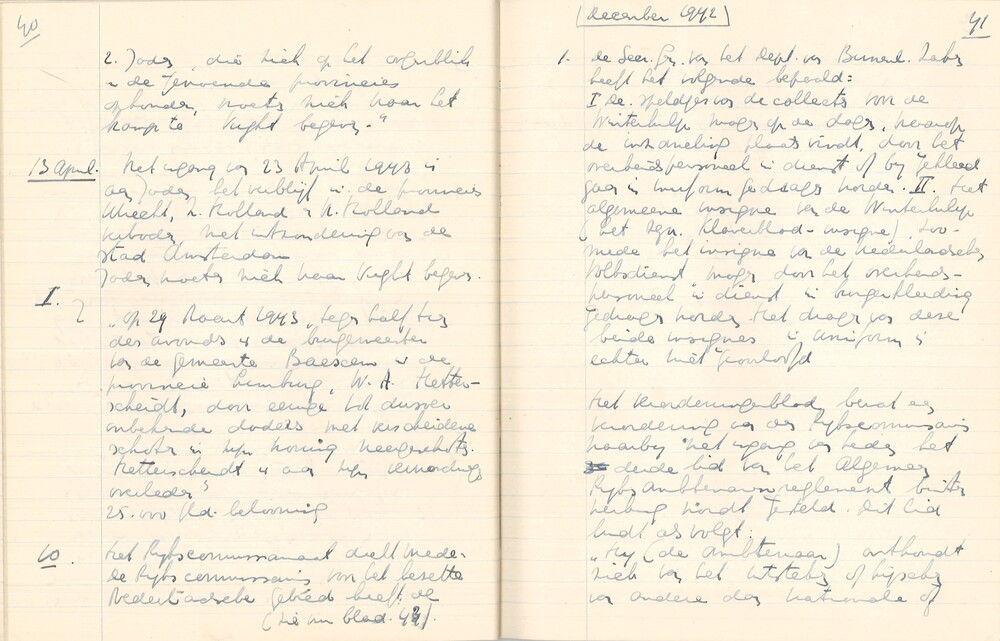 40
2. Joden, die zich op het oogenblik
in de genoemde provincies
ophouden, moeten zich naar het
kamp te Vught begeven."
13 April. Met ingang van 23 April 1943 is
aan Joden het verblijf in de provincies
Utrecht, Z. Holland en N. Holland
verboden, met uitzondering van de
stad Amsterdam
Joden moeten zich naar Vught begeven.
I. "Op 29 Maart 1943, tegen half tien
des avonds is de burgemeester
van de gemeente Baexem in de
provincie Limburg, W. A. Hetter-
scheidt, door eenige tot dusver
onbekende daders met verscheidene
schoten in zijn woning neergeschoten.
Hetterscheidt is aan zijn verwondingen
overleden"
25.000 gld. belooning
10. Het Rijkscommissariaat deelt mede:
de Rijkscommissaris voor het bezette
Nederlandsche gebied heeft de
(zie nu blad. 42).
(december 1942)
41
1. de Secr. Gen. van het Dept. van Binnenl. Zaken
heeft het volgende bepaald:
I de speldjes van de collecte voor de
Winterhulp mogen op de dagen, waarop
de inzameling plaats vindt, door het
overheidspersoneel in dienst of bij
gaan in uniform gedragen worden. II. Het
algemeene insigne van de Winterhulp
(het zgn. Klaverblad-insigne), zoo-
mede het insigne van de Nederlandschen
Volksdienst mogen door het overheids-
personeel in dienst in burgerkleeding
gedragen worden. Het dragen van deze
beide insignes in uniform is
echter niet geoorloofd
Het Verordeningenblad bevat een
verordening van den Rijkscommissaris
waarbij met ingang van heden het
derde lid van het Algemeen
Rijksambtenarenreglement buiten
werking wordt gesteld. Dit lid
luidt als volgt:
"Hij (de ambtenaar) onthoudt
zich van het uitsteken of hijschen
van andere dan nationale of